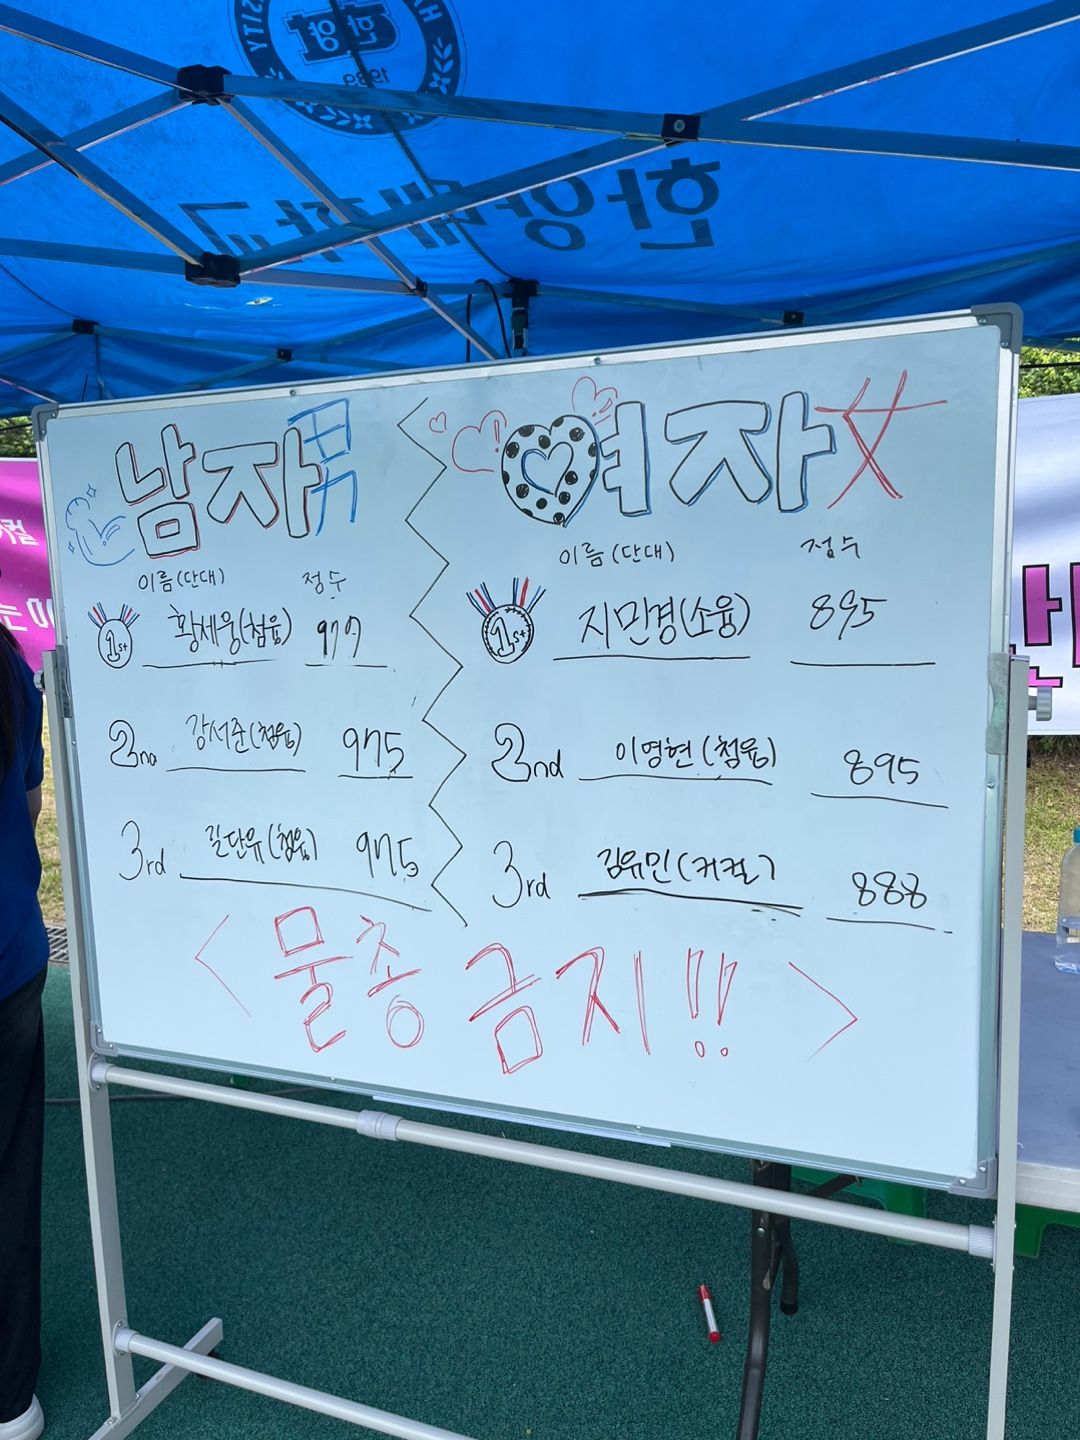 한양대학교
1939
남자男
이름(단대) 점수
1st 황세웅(첨융) 977
2nd 강서준(첨융) 975
3rd 길단유(첨융) 975
여자女
이름(단대) 점수
1st 지민경(소융) 895
2nd 이영현(첨융) 895
3rd 김유민(커컬) 888
<물총 금지!!>
커컬